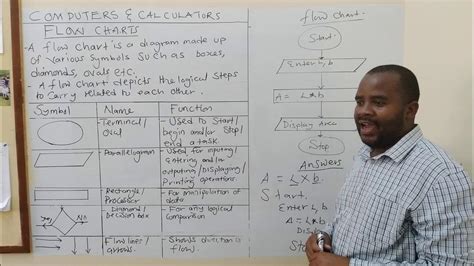 COMPUTERS & CALCULATORS
FLOW CHARTS
-A flow chart is a diagram made up
of various symbols such as boxes,
diamonds, ovals etc.
- A flow chart depicts the logical steps
to carry related to each other.
Symbol Name Function
Terminal/
Oval
- Used to start/
begin and/or stop/
end a task.
Parallelogram
- Used for inputing/
entering and/or
outputing/displaying/
printing operations.
Rectangle/
Processor
- For manipulation of
data
Diamond/
Decision box
- For any logical
comparison
Flow lines/
arrows.
- Shows direction of
flow.
flow chart.
Start
Enter L, b
A = L*b
Display Area
Stop
Answers
A = L X b.
Start,
Enter L, b
A = L*b